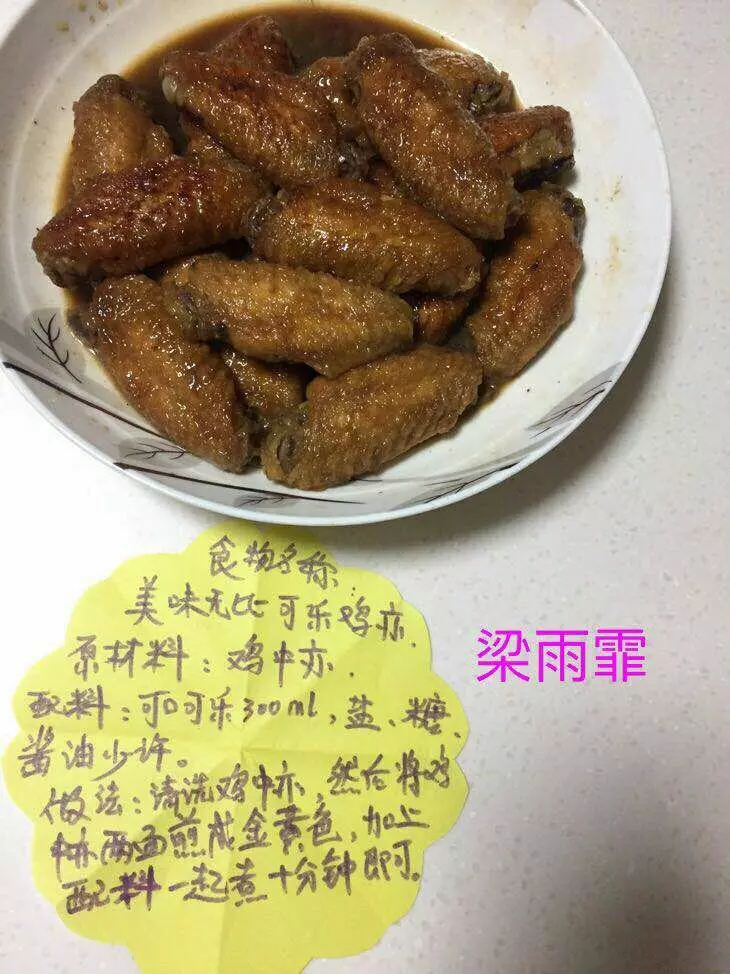 食物名称:
美味无比可乐鸡亦.
原材料:鸡中亦.
配料:可口可乐300ml,盐、糖、
酱油少许。
做法:清洗鸡中亦,然后将鸡
中亦两面煎成金黄色,加上
配料一起煮十分钟即可。
梁雨霏